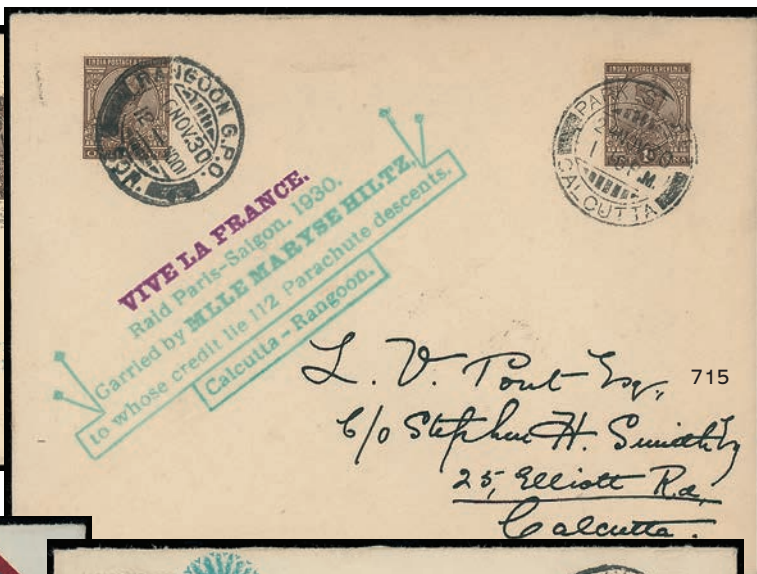 INDIA POSTAGE & REVENUE
RANGOON G.P.O.
NOV.30
INDIA POSTAGE & REVENUE
PARK ST.
CALCUTTA
VIVE LA FRANCE.
Raid Paris-Saigon. 1930.
Carried by MLLE MARYSE HILTZ,
to whose credit lie 112 Parachute descents.
Calcutta - Rangoon.
L. V. Pont Esq,
715
c/o Stephen H. Smith Esq
25, Elliott Rd,
Calcutta.